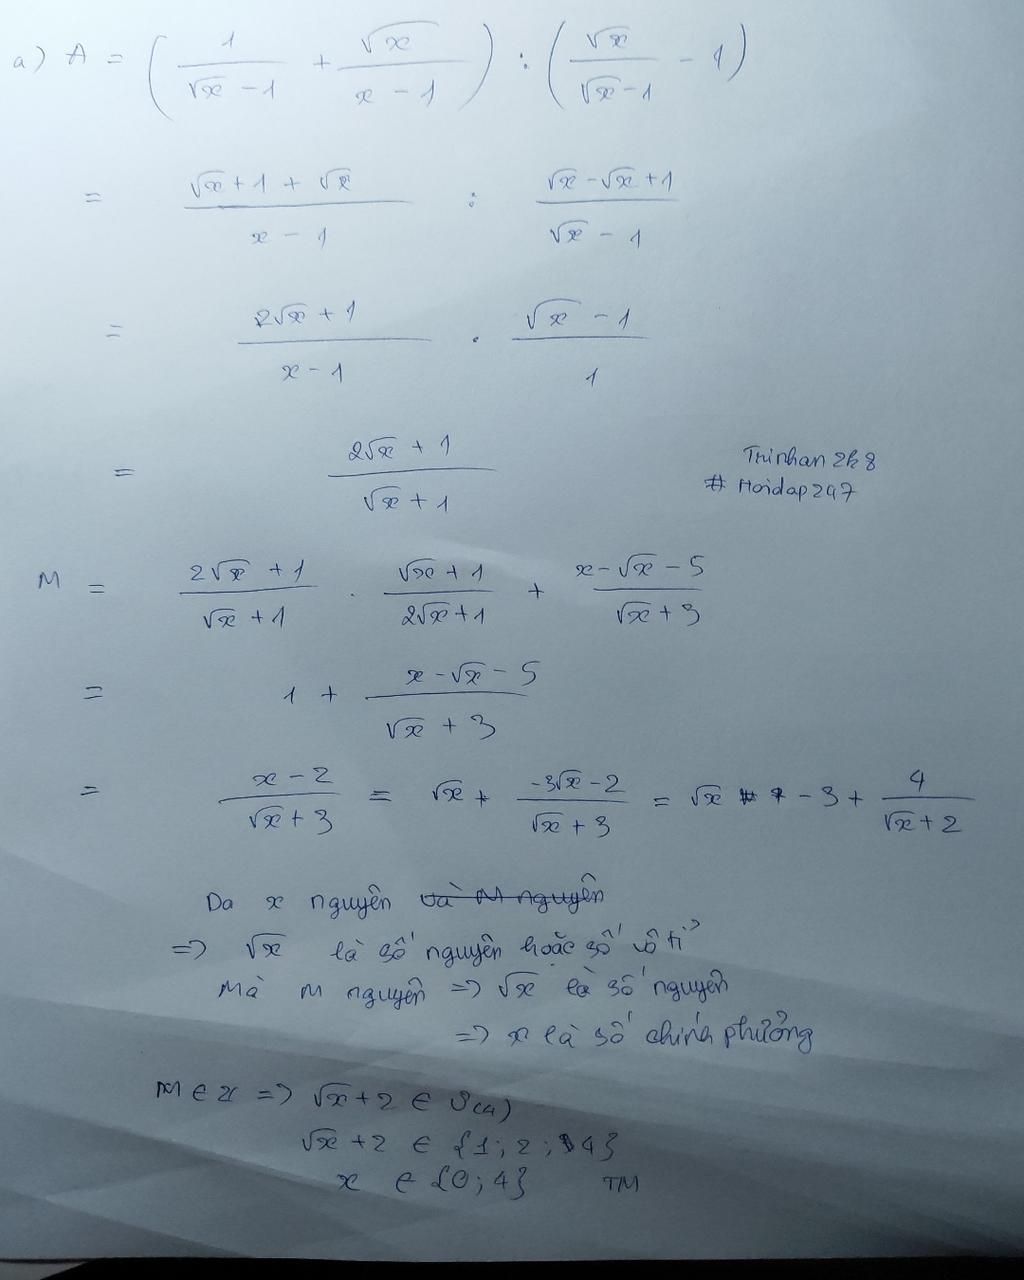 a) A = (1/(√x - 1) + √x/(x - 1)) : (√x/(√x - 1) - 1)
= (√x + 1 + √x)/(x - 1) : (√x - √x + 1)/(√x - 1)
= (2√x + 1)/(x - 1) . (√x - 1)/1
= (2√x + 1)/(√x + 1)
Trinhan2k8
# Hoidap247
M = (2√x + 1)/(√x + 1) . (√x + 1)/(2√x + 1) + (x - √x - 5)/(√x + 3)
= 1 + (x - √x - 5)/(√x + 3)
= (x - 2)/(√x + 3) = √x + (-3√x - 2)/(√x + 3) = √x - 3 + 4/(√x + 2)
Da x nguyên và M nguyên
=> √x là số nguyên hoặc số vô tỉ
Mà M nguyên => √x là số nguyên
=> x là số chính phưởng
M ∈ Z => √x + 2 ∈ Ư(4)
√x + 2 ∈ {1; 2; 4}
x ∈ {0; 4} TM